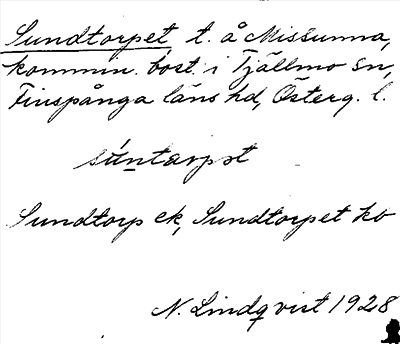 Sundtorpet, t. å Missunna,
kommin. bost. i Tjällmo sn,
Finspånga läns hd, Österg. l.
súntarpet
Sundtorp ek, Sundtorpet ko
N. Lindqvist 1928